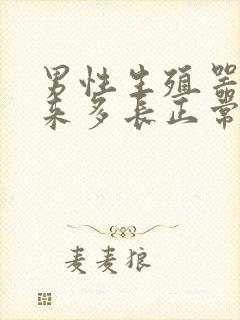 男性生殖器
来多长正常
麦麦狼